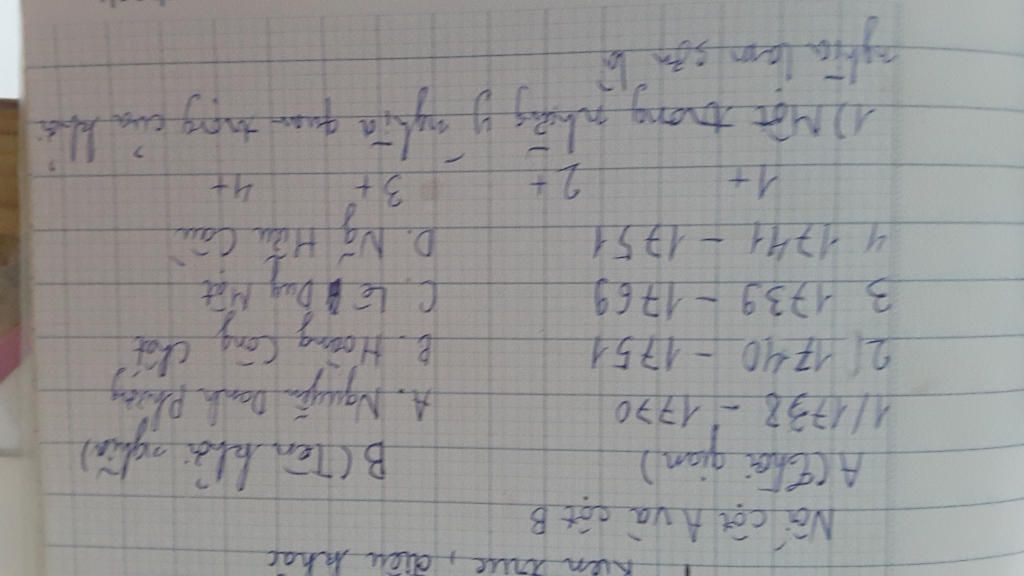 kiến trúc, điêu khắc
Nối cột A và cột B
A (Thời gian) B (Tên khởi nghĩa)
1/ 1738 - 1770 A. Nguyễn Danh Phương
2/ 1740 - 1751 B. Hoàng Công Chất
3 1739 - 1769 C. Lê Duy Mật
4 1741 - 1751 D. Ng Hữu Cầu
1 + 2 + 3 + 4 +
1) Một trong những ý nghĩa quan trọng của khởi
nghĩa lam sơn là